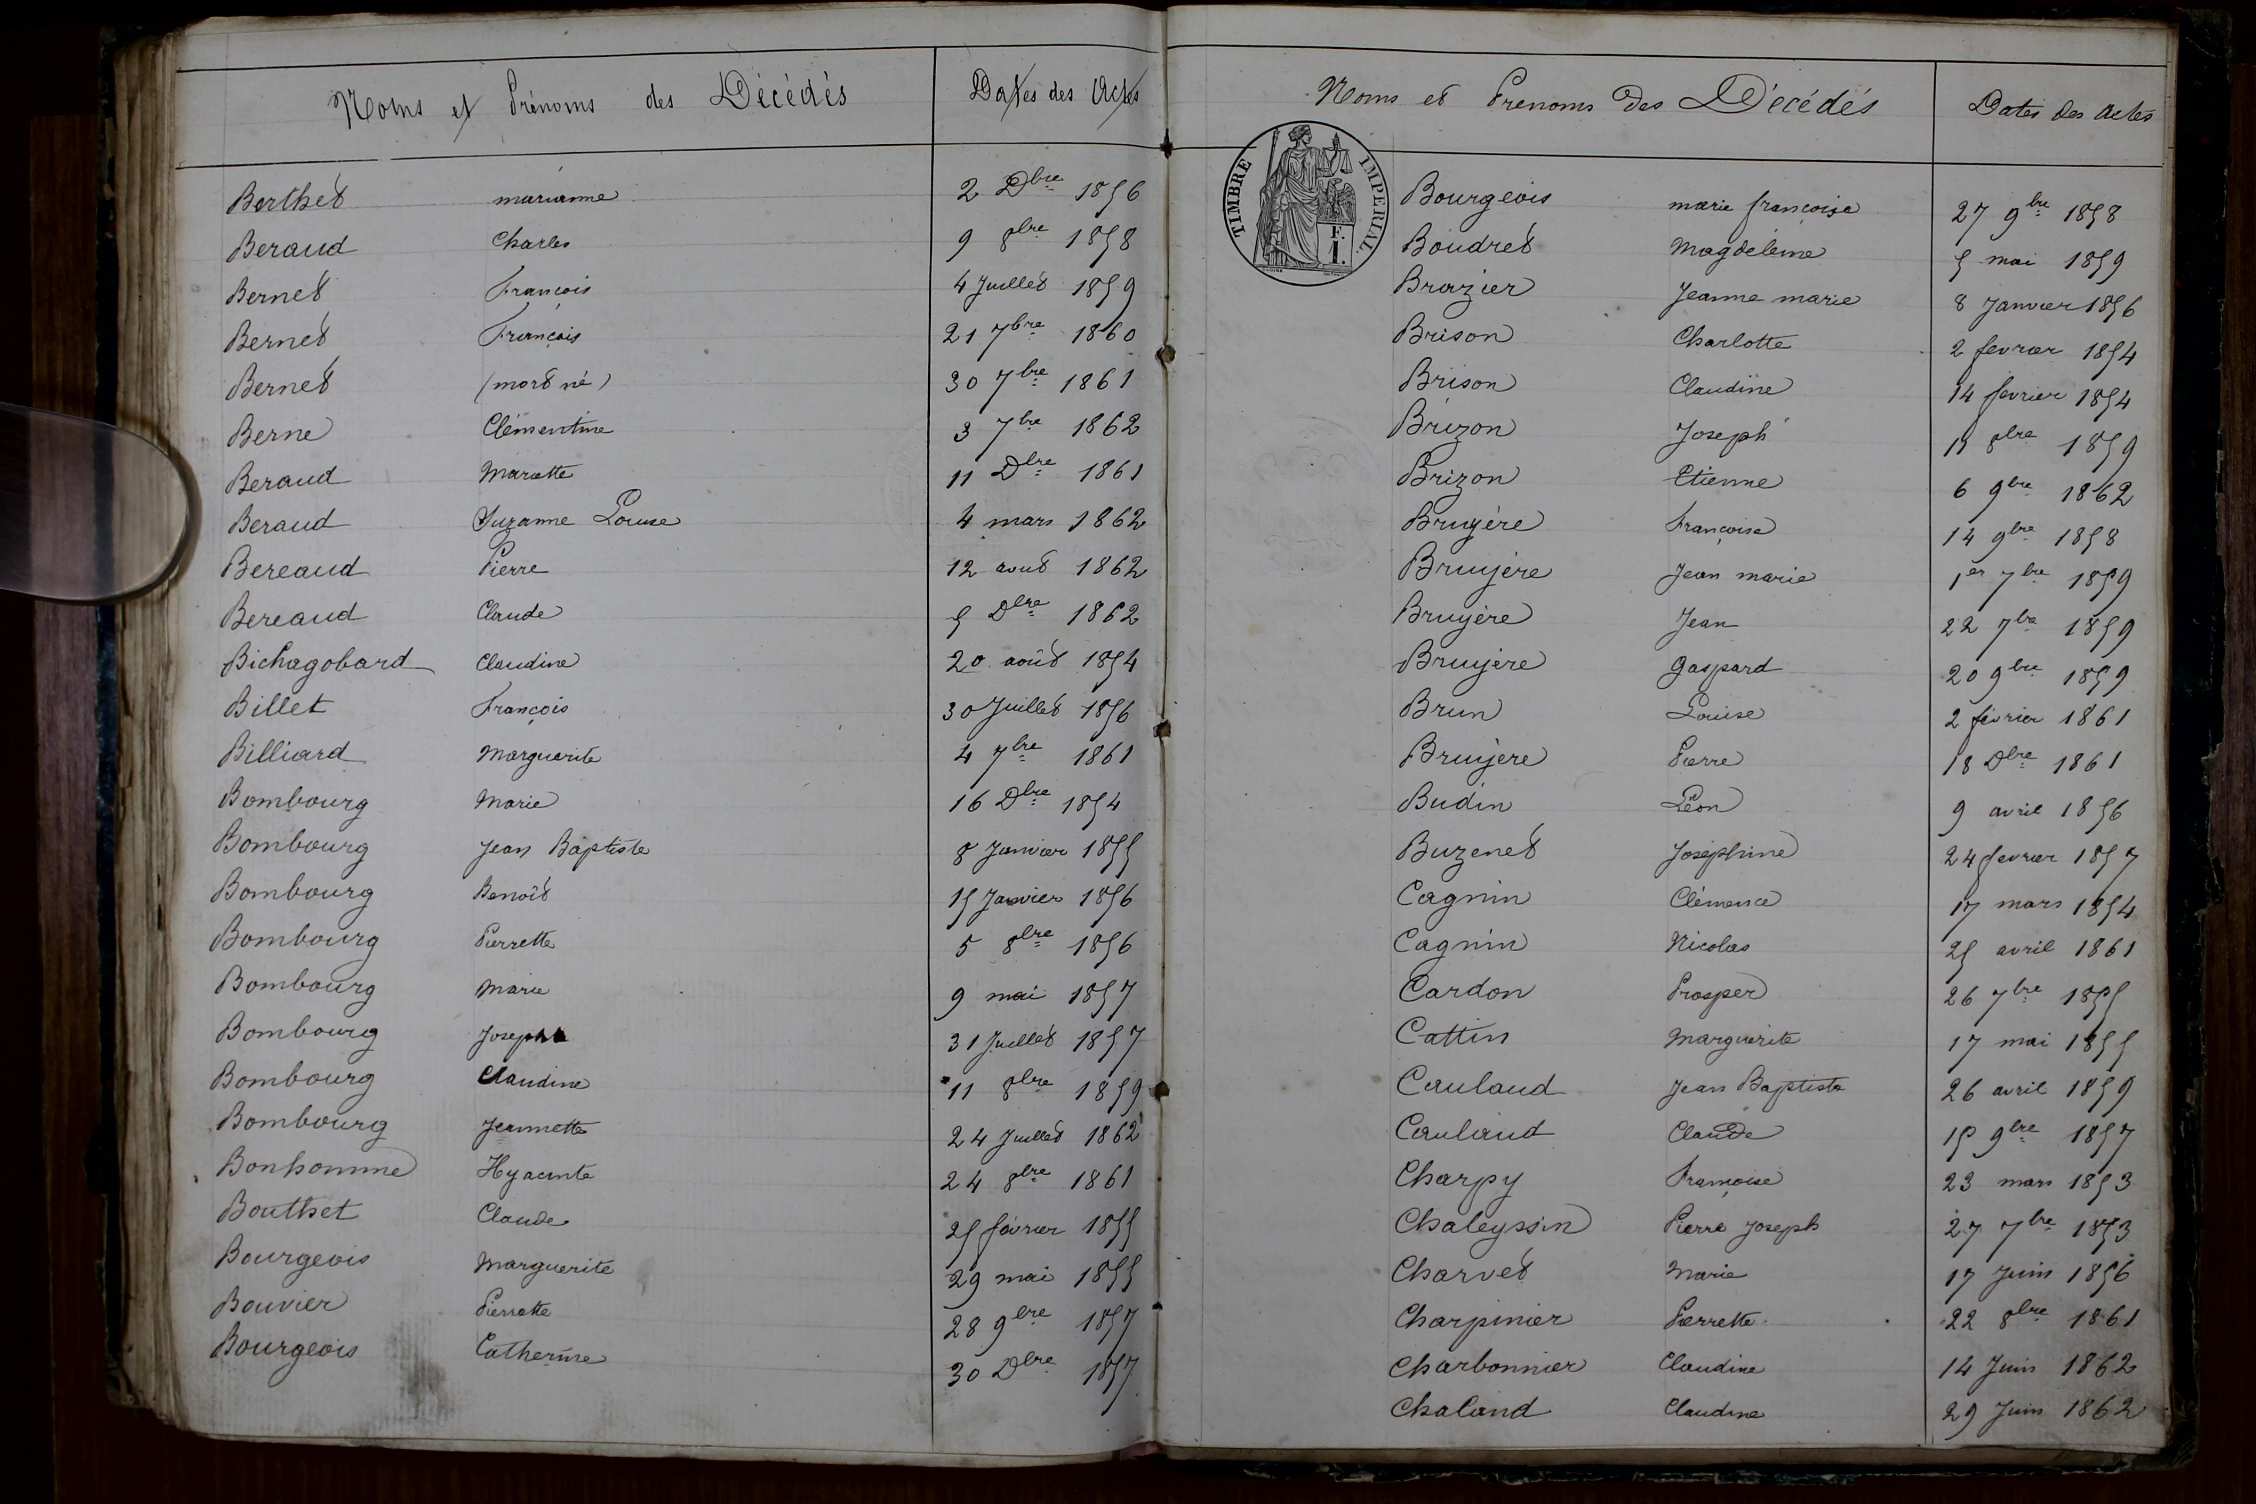 Noms et Prénoms des Décédés Dates des Actes
Berthet marianne 2 Dbre 1856
Beraud Charles 9 8bre 1858
Bernet François 4 Juillet 1859
Bernet François 21 7bre 1860
Bernet (mort né) 30 7bre 1861
Berne Clémentine 3 7bre 1862
Beraud Mariette 11 Dbre 1861
Beraud Suzanne Louise 4 mars 1862
Bereaud Pierre 12 aout 1862
Bereaud Claude 5 Dbre 1862
Bichagobard Claudine 20 août 1854
Billet François 30 Juillet 1856
Billiard Marguerite 4 7bre 1861
Bombourg Marie 16 Dbre 1854
Bombourg Jean Baptiste 8 Janvier 1855
Bombourg Benoît 15 Janvier 1856
Bombourg Pierrette 5 8bre 1856
Bombourg Marie 9 mai 1857
Bombourg Joseph 31 Juillet 1857
Bombourg Claudine 11 8bre 1859
Bombourg Jeannette 24 Juillet 1862
Bonhomme Hyacinte 24 8bre 1861
Bouthet Claude 25 février 1855
Bourgeois Marguerite 29 mai 1855
Bouvier Pierrette 28 9bre 1857
Bourgeois Catherine 30 Dbre 1857
Noms et Prenoms des Décédés Dates des Actes
TIMBRE IMPERIAL
F.
1.
Bourgeois marie françoise 27 9bre 1858
Boudret Magdeleine 5 mai 1859
Brazier Jeanne marie 8 Janvier 1856
Brison Charlotte 2 fevrier 1854
Brison Claudine 14 fevrier 1854
Brizon Joseph 11 8bre 1859
Brizon Etienne 6 9bre 1862
Bruyère Françoise 14 9bre 1858
Bruyère Jean marie 1er 7bre 1859
Bruyère Jean 22 7bre 1859
Bruyère Gaspard 20 9bre 1859
Brun Louise 2 février 1861
Bruyère Pierre 18 Dbre 1861
Budin Léon 9 avril 1856
Buzenet Joséphine 24 fevrier 1857
Cagnin Clémence 17 mars 1854
Cagnin Nicolas 25 avril 1861
Cardon Prosper 26 7bre 1855
Cattin Marguerite 17 mai 1855
Caulaud Jean Baptiste 26 avril 1859
Caulaud Claude 15 9bre 1857
Charpy Françoise 23 mars 1853
Chaleyssin Pierre Joseph 27 7bre 1853
Charvet Marie 17 Juin 1856
Charpinier Pierrette 22 8bre 1861
Charbonnier Claudine 14 Juin 1862
Chaland Claudine 29 Juin 1862